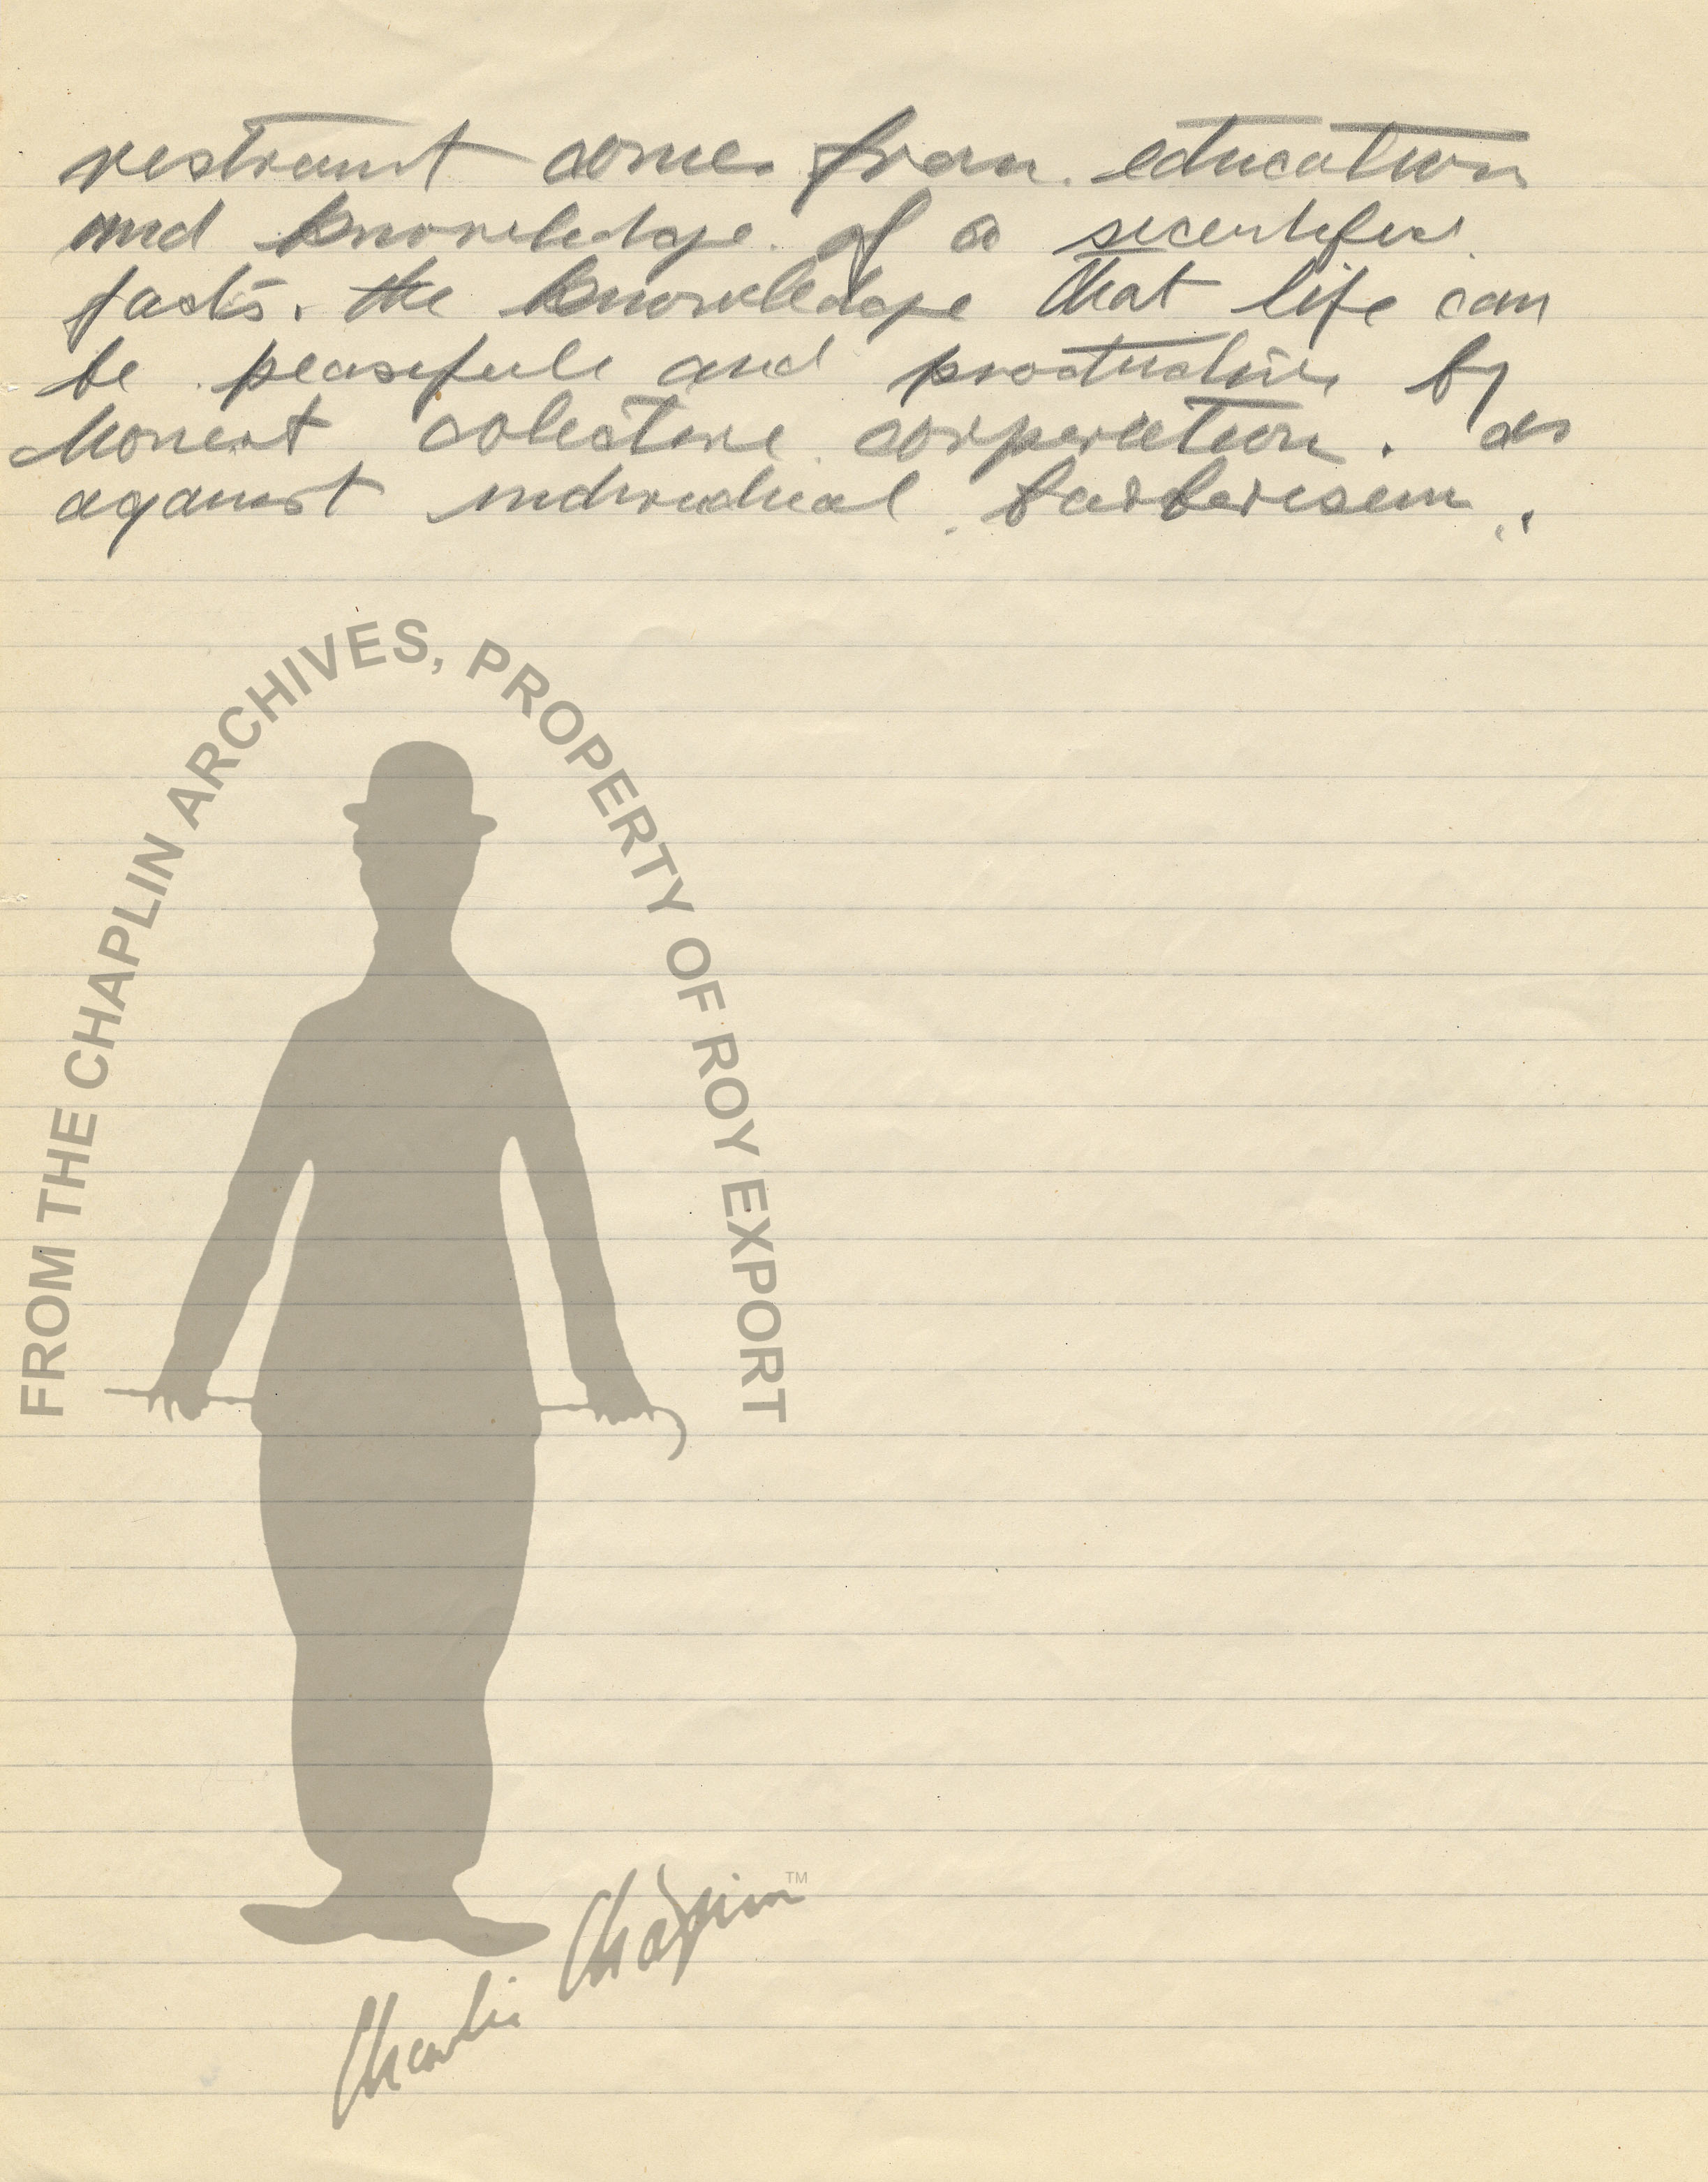 restraint comes from. education
and knowledge. of a scientific
facts. the knowledge that life can
be peasefull and productive by
Honest colective corperation. as
against individual barberisem.
FROM THE CHAPLIN ARCHIVES, PROPERTY OF ROY EXPORT
Charlie Chaplin™